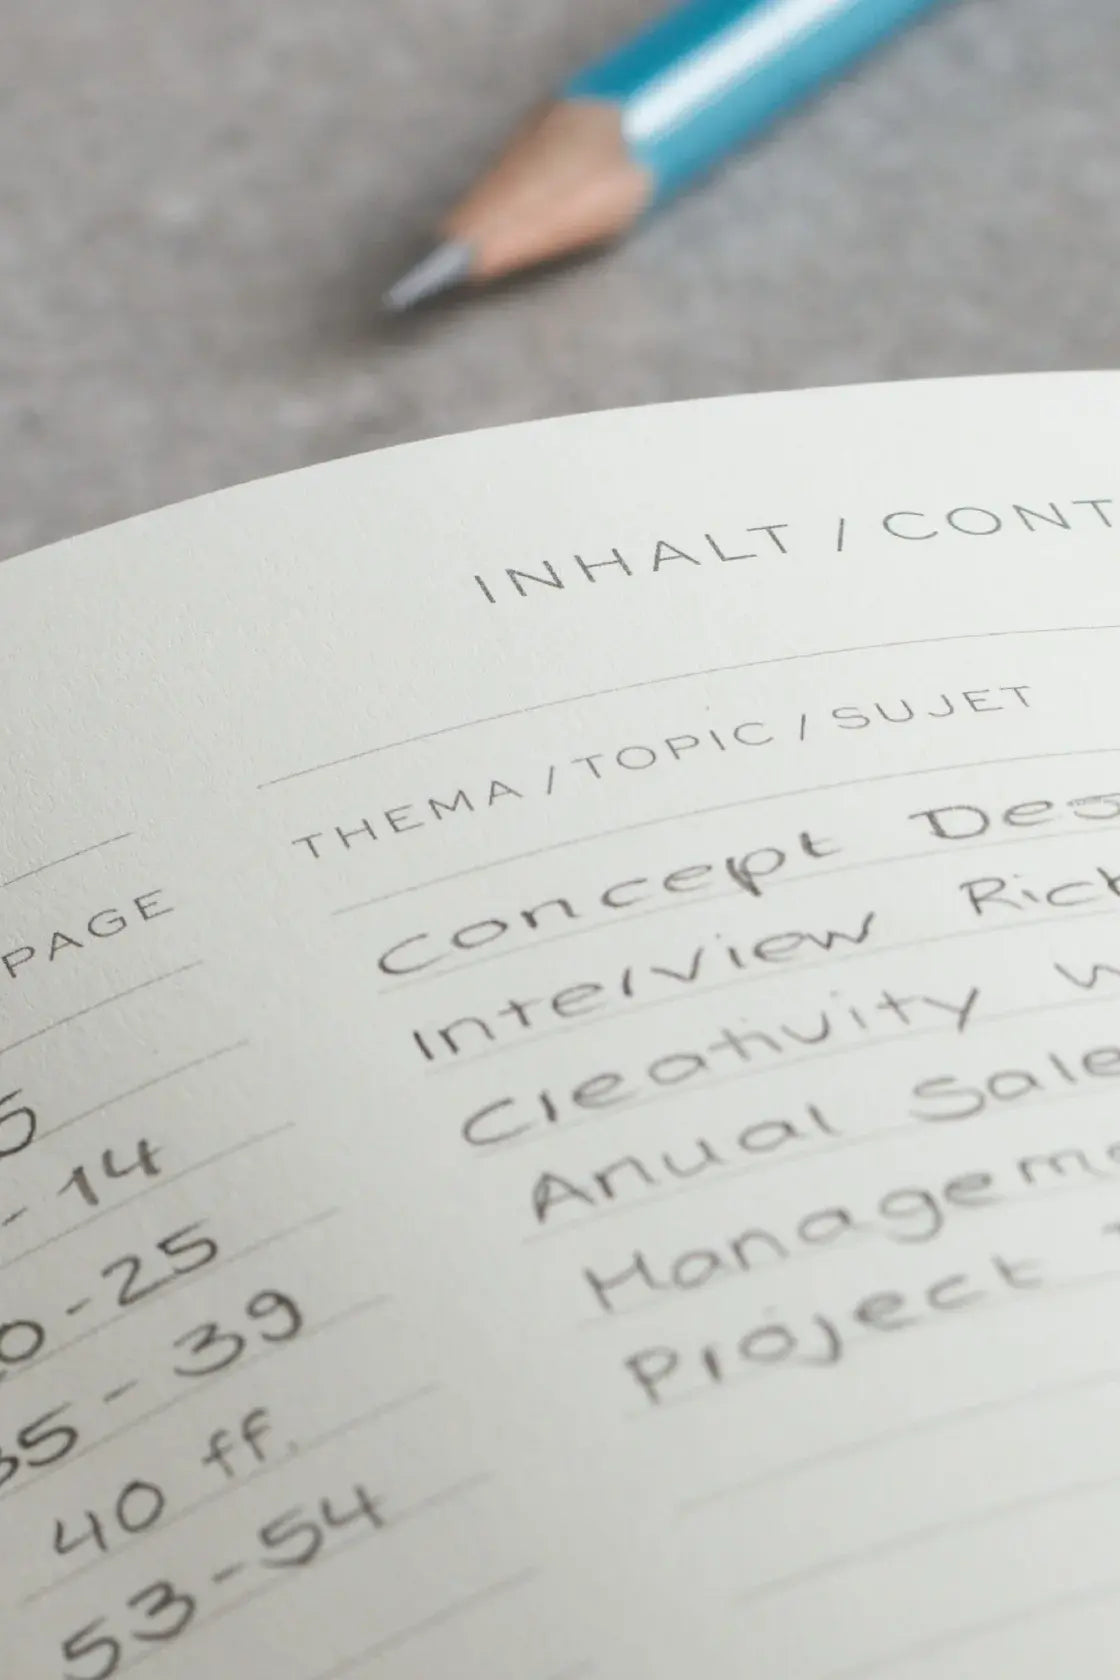 INHALT / CONT
PAGE THEMA / TOPIC / SUJET
5 Concept Des
- 14 Interview Rich
0 - 25 Creativity W
35 - 39 Anual Sale
40 ff. Managem
53 - 54 Project